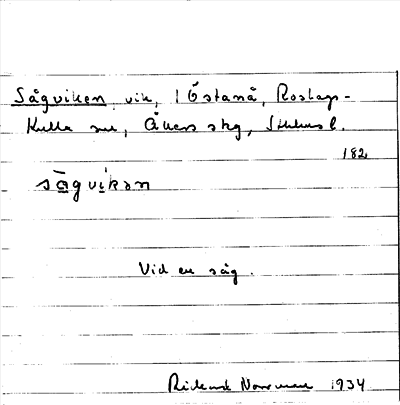 Sågviken, vik, 1 Östanå, Roslags-
Kulla sn, Åkers skg, Sthlms l.
182
sågvikən
Vid en såg.
Rickard Norrman 1934